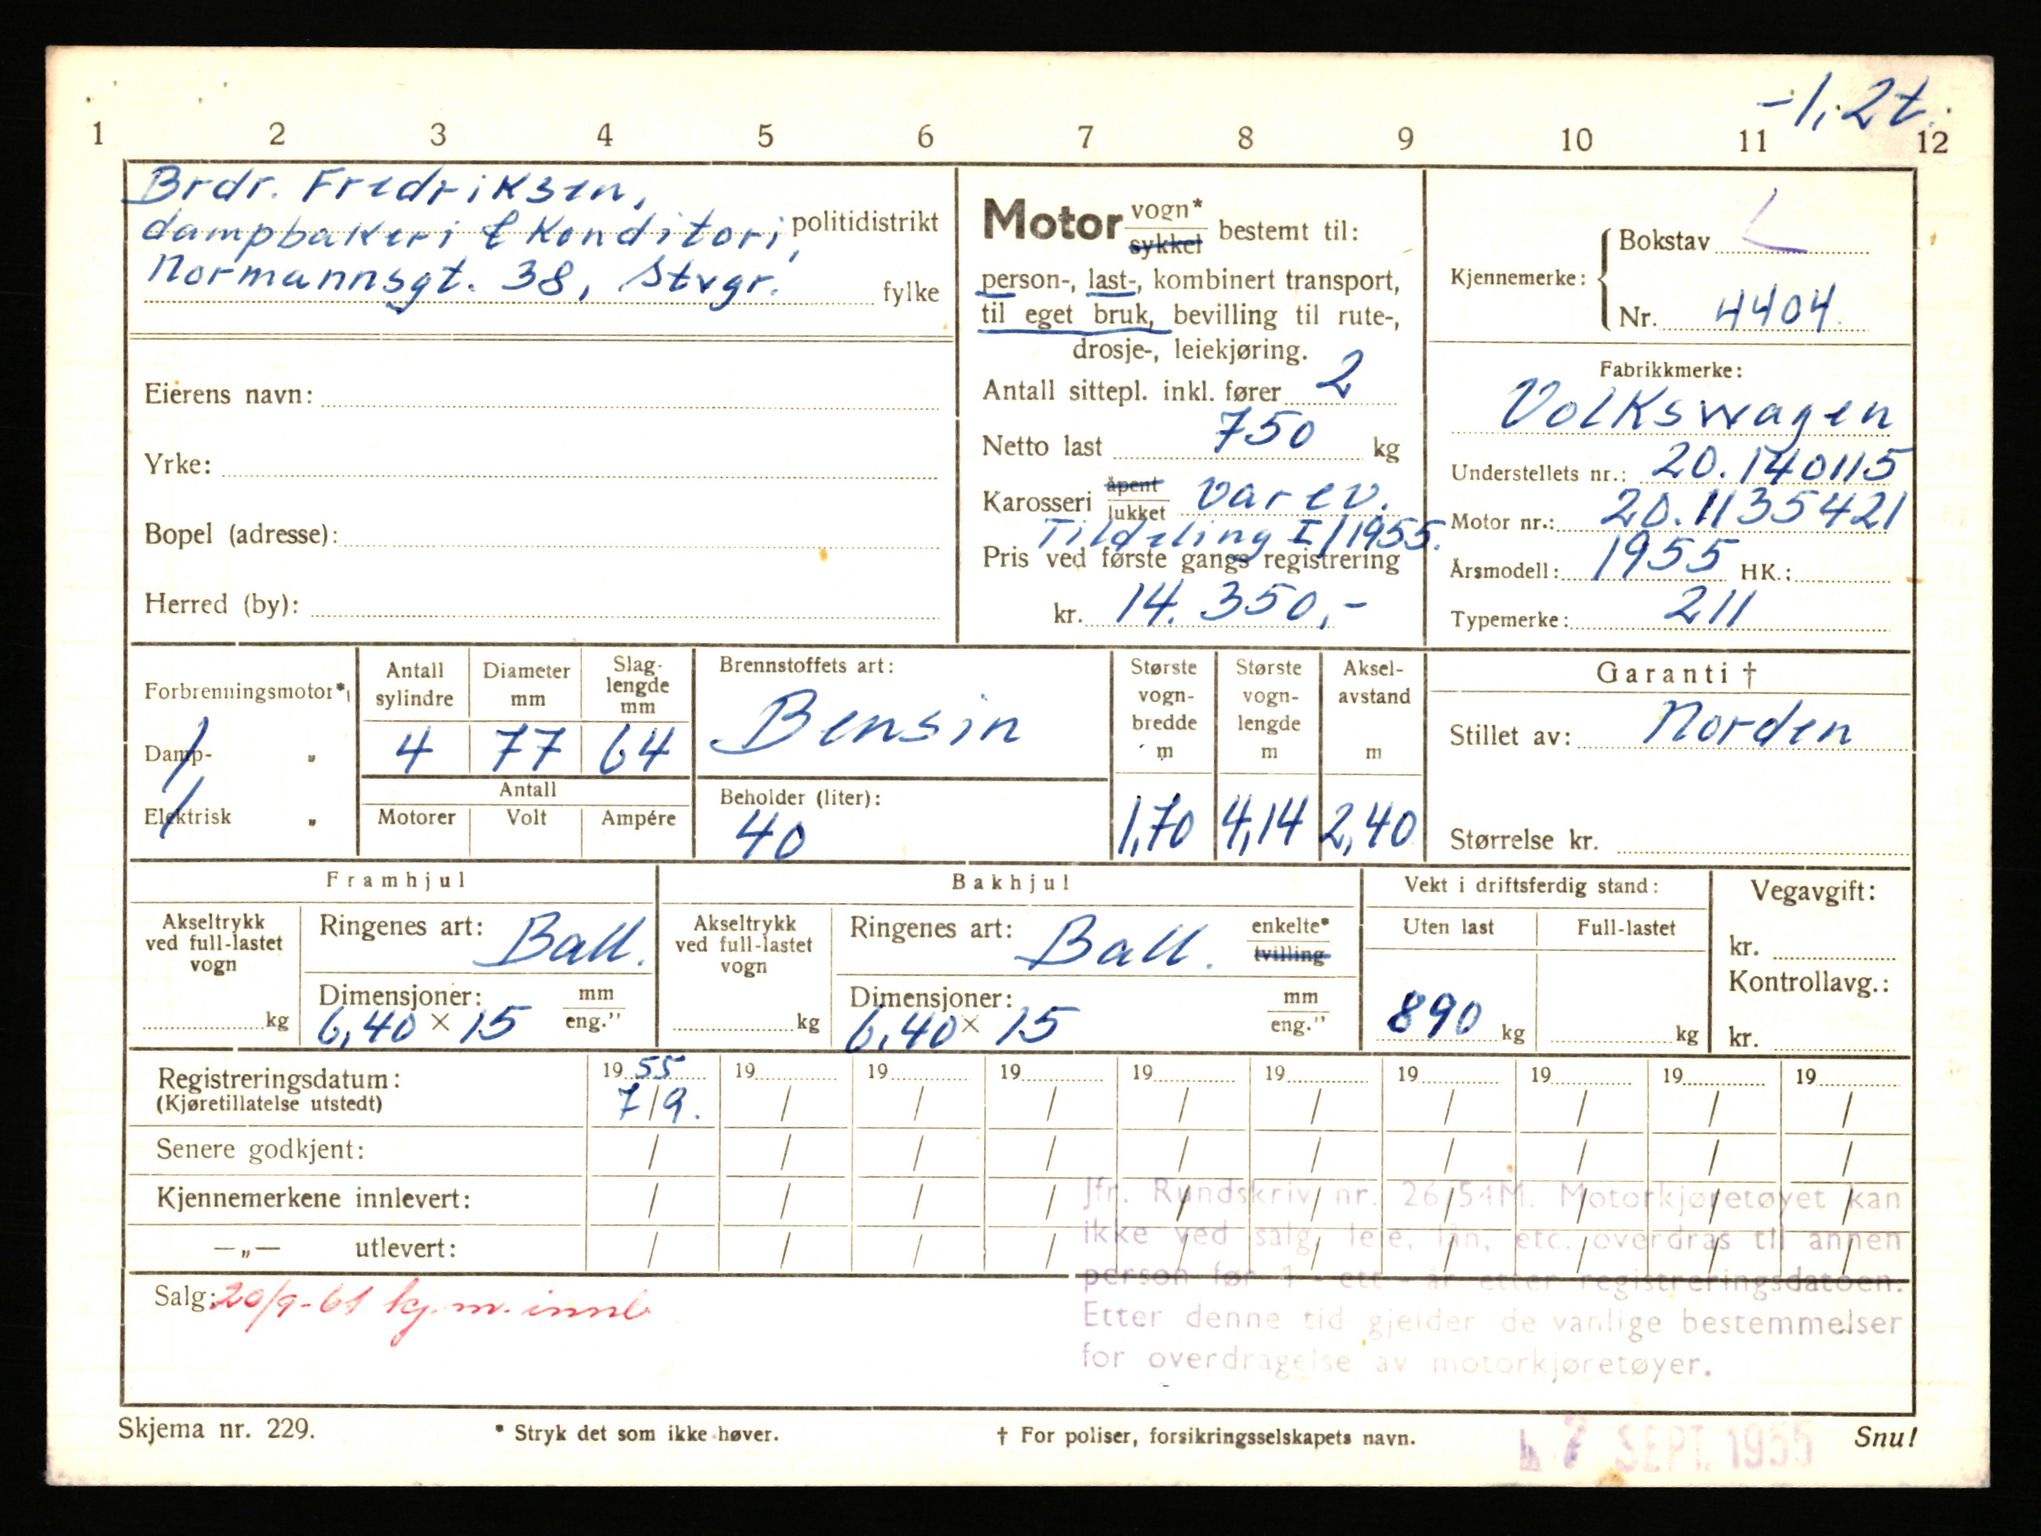 -1,2t.
1 2 3 4 5 6 7 8 9 10 11 12
Brdr. Fredriksen,
dampbakeri & Konditori, politidistrikt
Normannsgt. 38, Stvgr. fylke
Eierens navn:
Yrke:
Bopel (adresse):
Herred (by):
Motor vogn* sykkel bestemt til:
person-, last-, kombinert transport,
til eget bruk, bevilling til rute-,
drosje-, leiekjøring.
Antall sittepl. inkl. fører 2
Netto last 750 kg
Karosseri åpent lukket varev.
Tildeling I/1955.
Pris ved første gangs registrering
kr. 14.350,-
Kjennemerke: Bokstav L
Nr. 4404
Fabrikkmerke:
Volkswagen
Understellets nr.: 20.140115
Motor nr.: 20.1135421
Årsmodell: 1955 HK.:
Typemerke: 211
Forbrenningsmotor*)
Damp- „
Elektrisk „
Antall sylindre
Diameter mm
Slag-lengde mm
4 77 64
Antall
Motorer Volt Ampére
Brennstoffets art:
Bensin
Beholder (liter):
40
Største vogn-bredde m
1,70
Største vogn-lengde m
4,14
Aksel-avstand m
2,40
Garanti †
Stillet av: Norden
Størrelse kr.
Framhjul
Akseltrykk ved full-lastet vogn
kg
Ringenes art: Ball.
Dimensjoner: mm eng."
6,40 x 15
Bakhjul
Akseltrykk ved full-lastet vogn
kg
Ringenes art: Ball. enkelte* tvilling
Dimensjoner: mm eng."
6,40 x 15
Vekt i driftsferdig stand:
Uten last Full-lastet
890 kg kg
Vegavgift:
kr.
Kontrollavg.:
kr.
Registreringsdatum: 19 55 19 19 19 19 19 19 19 19 19
(Kjøretillatelse utstedt) 7/9. / / / / / / / / /
Senere godkjent: / / / / / / / / / /
Kjennemerkene innlevert: / / / / / / / / / /
—„— utlevert: / / / / / / / / / /
Salg: 20/9-61 kj.m. innl
Jfr. Rundskriv nr. 26/54M. Motorkjøretøyet kan
ikke ved salg, leie, lån, etc. overdras til annen
person før 1 - ett - år etter registreringsdatoen.
Etter denne tid gjelder de vanlige bestemmelser
for overdragelse av motorkjøretøyer.
Skjema nr. 229.
* Stryk det som ikke høver.
† For poliser, forsikringsselskapets navn.
7 SEPT. 1955
Snu!